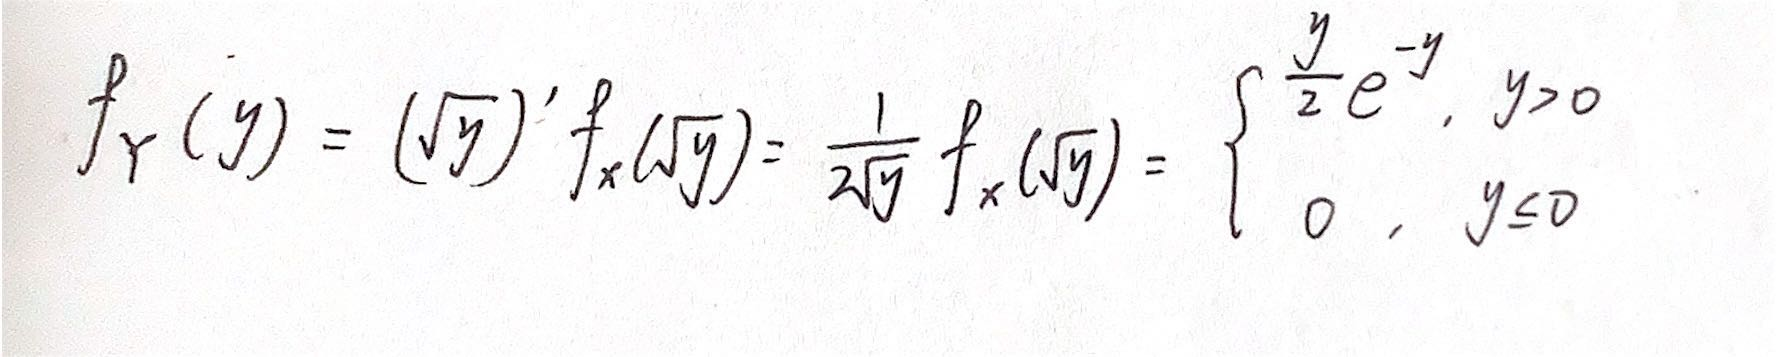 $f_Y(y) = (\sqrt{y})' f_x(\sqrt{y}) = \frac{1}{2\sqrt{y}} f_x(\sqrt{y}) = \begin{cases} \frac{y}{2} e^{-y}, & y>0 \\ 0, & y \le 0 \end{cases}$